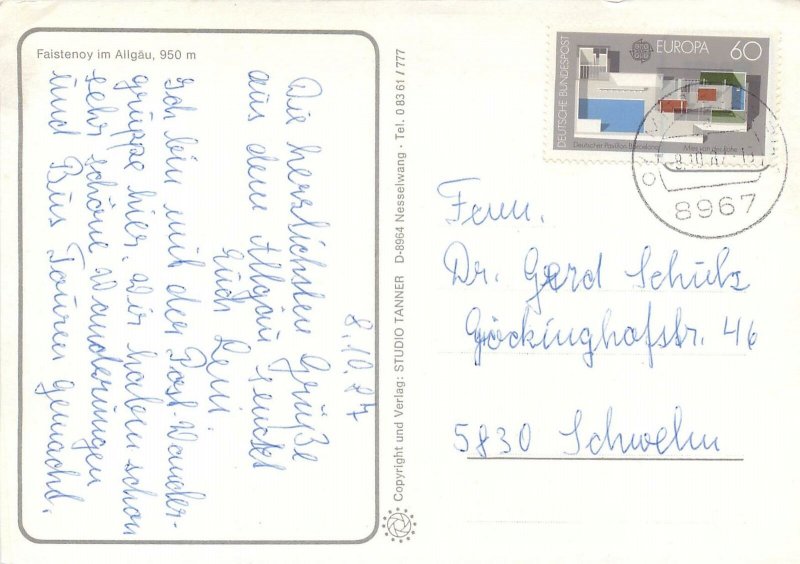 Faistenoy im Allgäu, 950 m
8.10.87
Die herzlichsten Grüße
aus dem Allgäu sendet
Euch Leni.
Ich bin mit der Post-Wander-
gruppe hier. Wir haben schon
sehr schöne Wanderungen
und Bus Touren gemacht.
Copyright und Verlag: STUDIO TANNER D-8964 Nesselwang · Tel. 0 83 61 / 777
DEUTSCHE BUNDESPOST
EUROPA 60
Deutscher Pavillon Barcelona
Mies van der Rohe
8.10.87
8967
Fam.
Dr. Gerd Schulz
Göckinghofstr. 46
5830 Schwelm